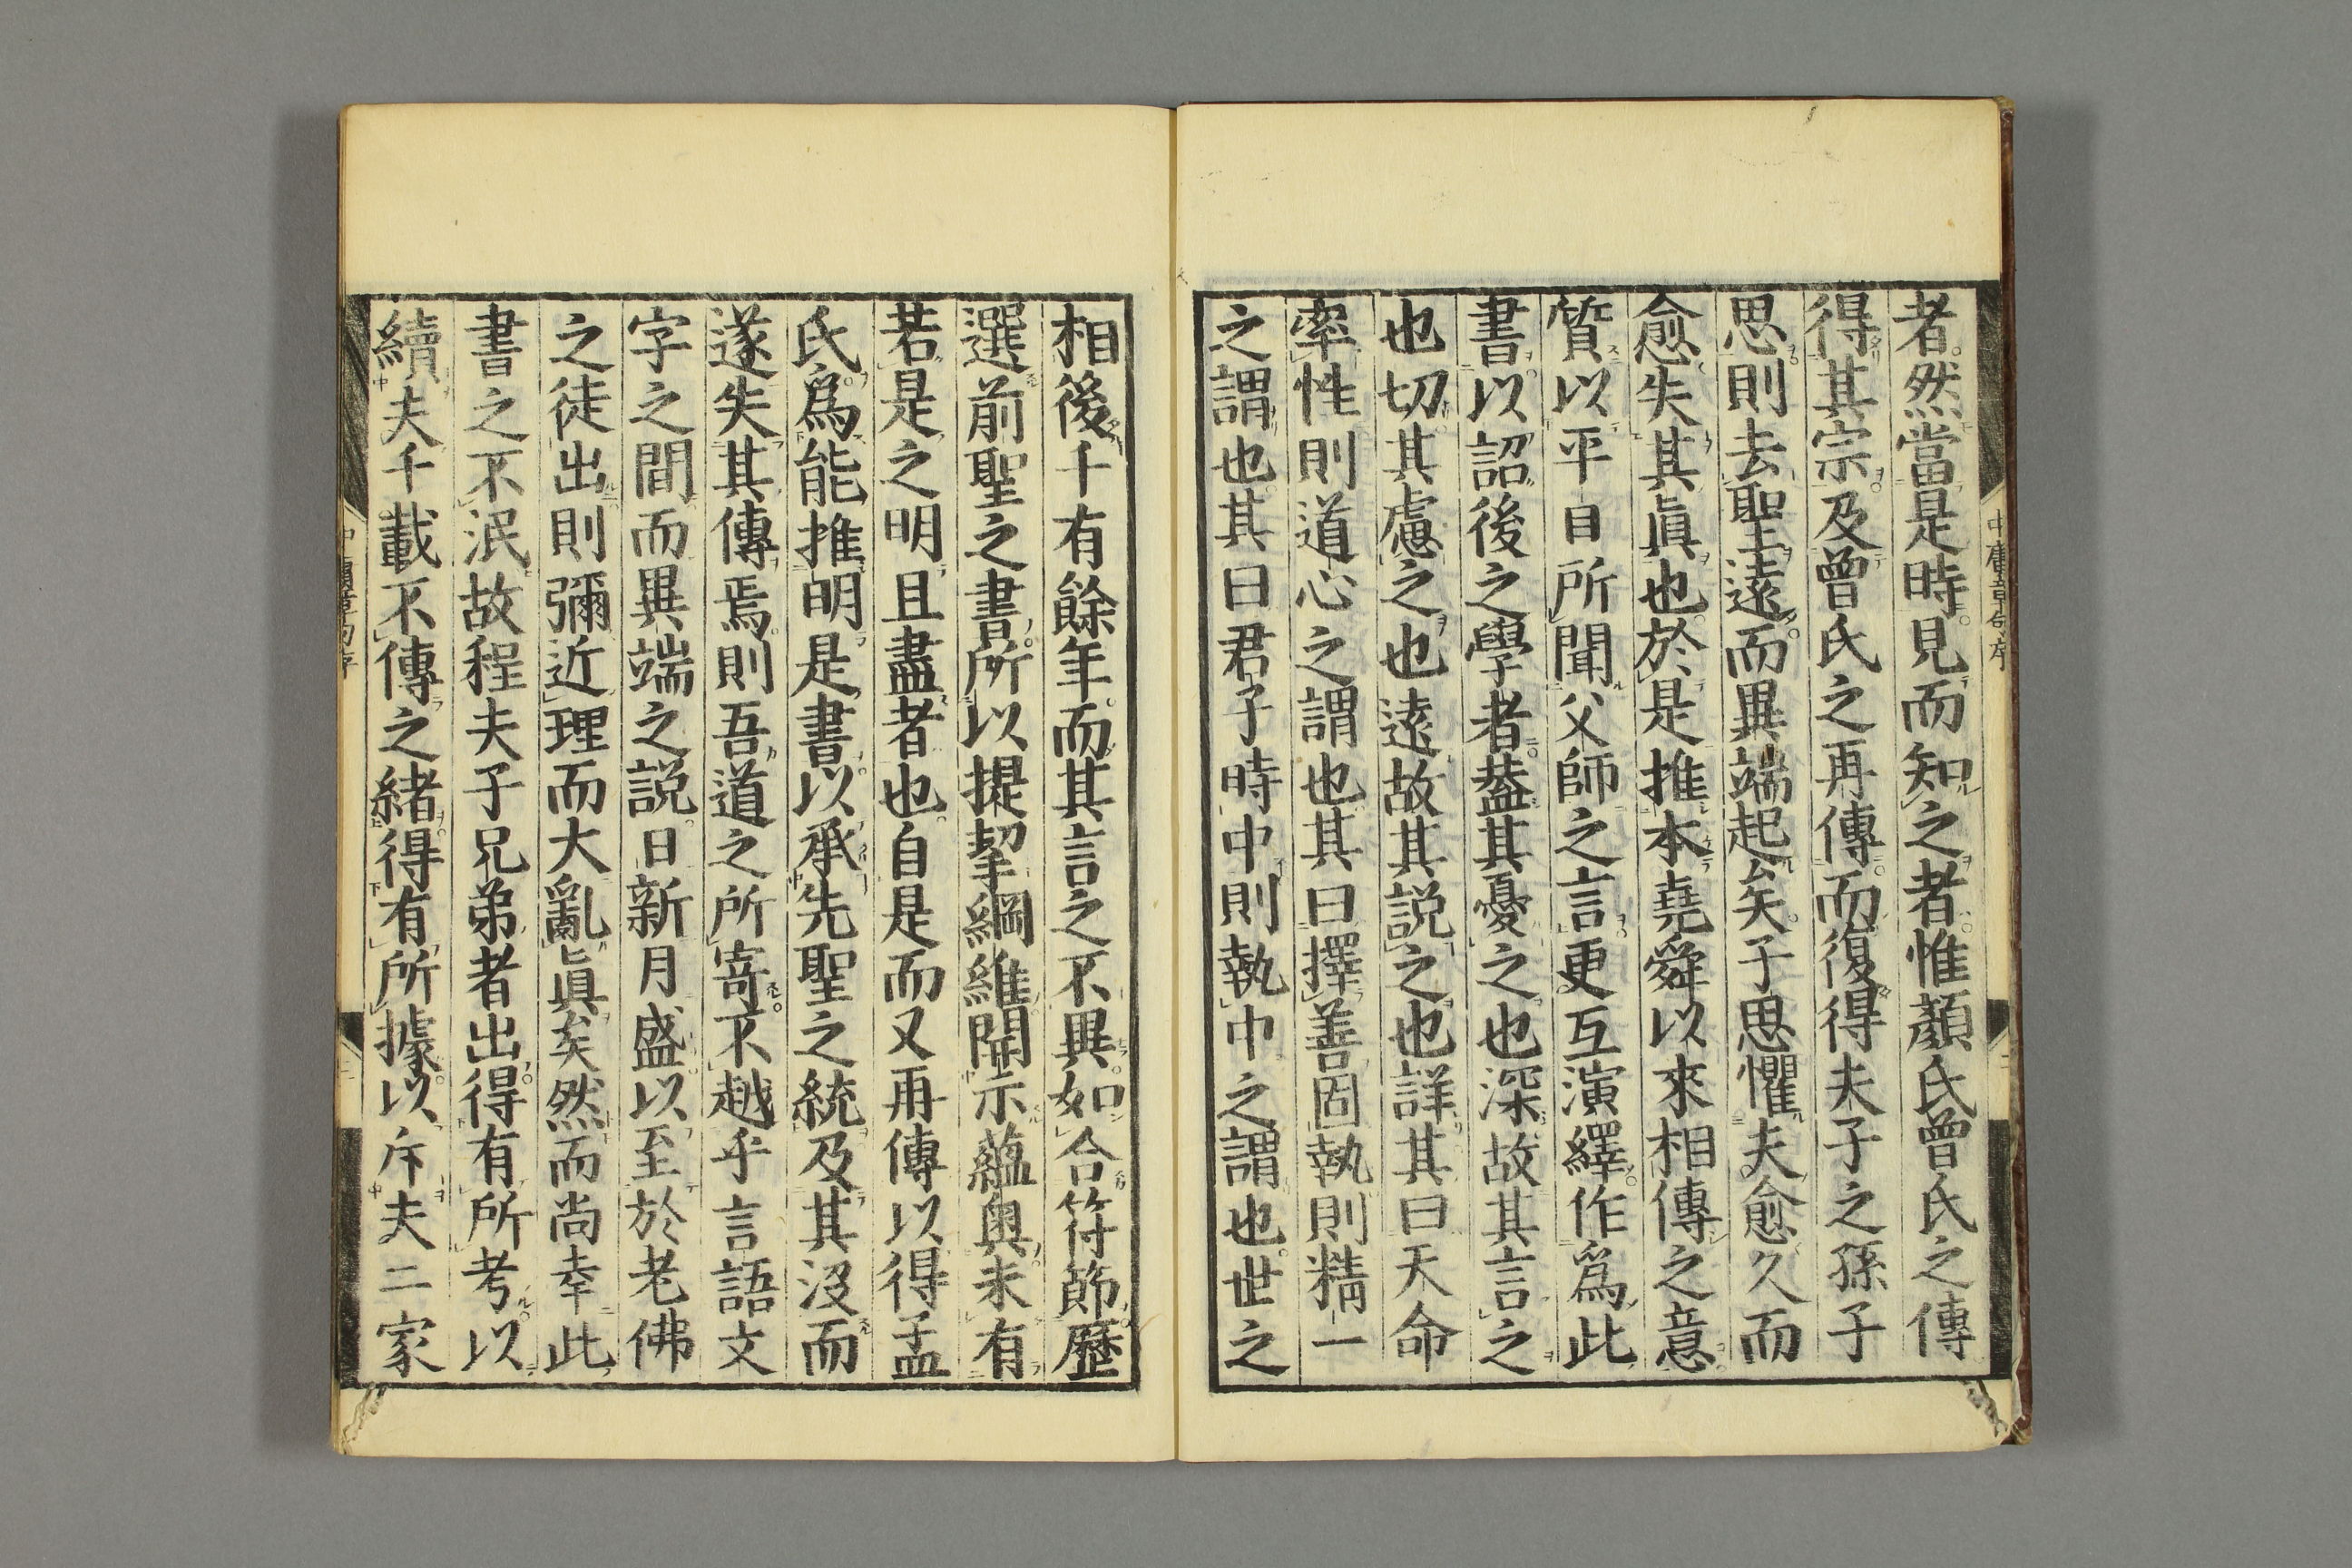 者然當是時見而知之者惟顏氏曾氏之傳
得其宗及曾氏之再傳而復得夫子之孫子
思則去聖遠而異端起矣子思懼夫愈久而
愈失其眞也於是推本堯舜以來相傳之意
質以平日所聞父師之言更互演繹作爲此
書以詔後之學者葢其憂之也深故其言之
也切其慮之也遠故其說之也詳其曰天命
率性則道心之謂也其曰擇善固執則精一
之謂也其曰君子時中則執中之謂也世之
相後千有餘年而其言之不異如合符節歷
選前聖之書所以提挈綱維開示蘊奧未有
若是之明且盡者也自是而又再傳以得孟
氏爲能推明是書以承先聖之統及其沒而
遂失其傳焉則吾道之所寄不越乎言語文
字之間而異端之說日新月盛以至於老佛
之徒出則彌近理而大亂眞矣然而尚幸此
書之不泯故程夫子兄弟者出得有所考以
續夫千載不傳之緒得有所據以斥夫二家